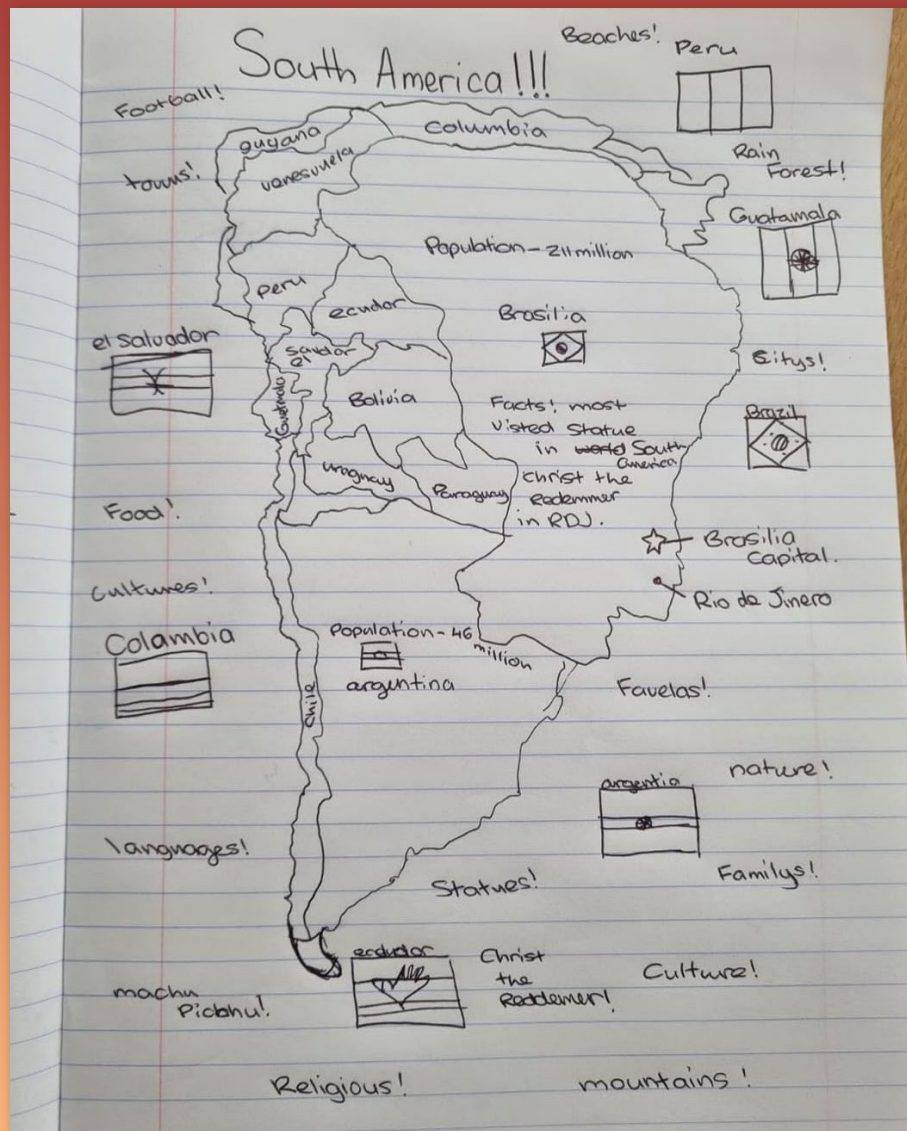 Beaches!
Peru
South America!!!
Football!
Columbia
guyana
vanesuuela
towns!
Rain
Forest!
Guatamala
Population - 211 million
Peru
ecudor
Brosilia
el Salvador
Salvdor
el
Citys!
Guatmala
Bolivia
Facts! most
visted Statue
in world South
america
Christ the
Redemmer
in RDJ.
Brazil
uragnay
Paraguay
Food!
Brosilia
Capital.
Cultures!
Rio de Jinero
Colambia
Population - 46
million
argentina
Chile
Favelas!
nature!
argentia
languages!
Familys!
Statues!
ecdudor
Christ
the
Reddemer!
Culture!
machu
Picbhu!
Religious!
mountains!